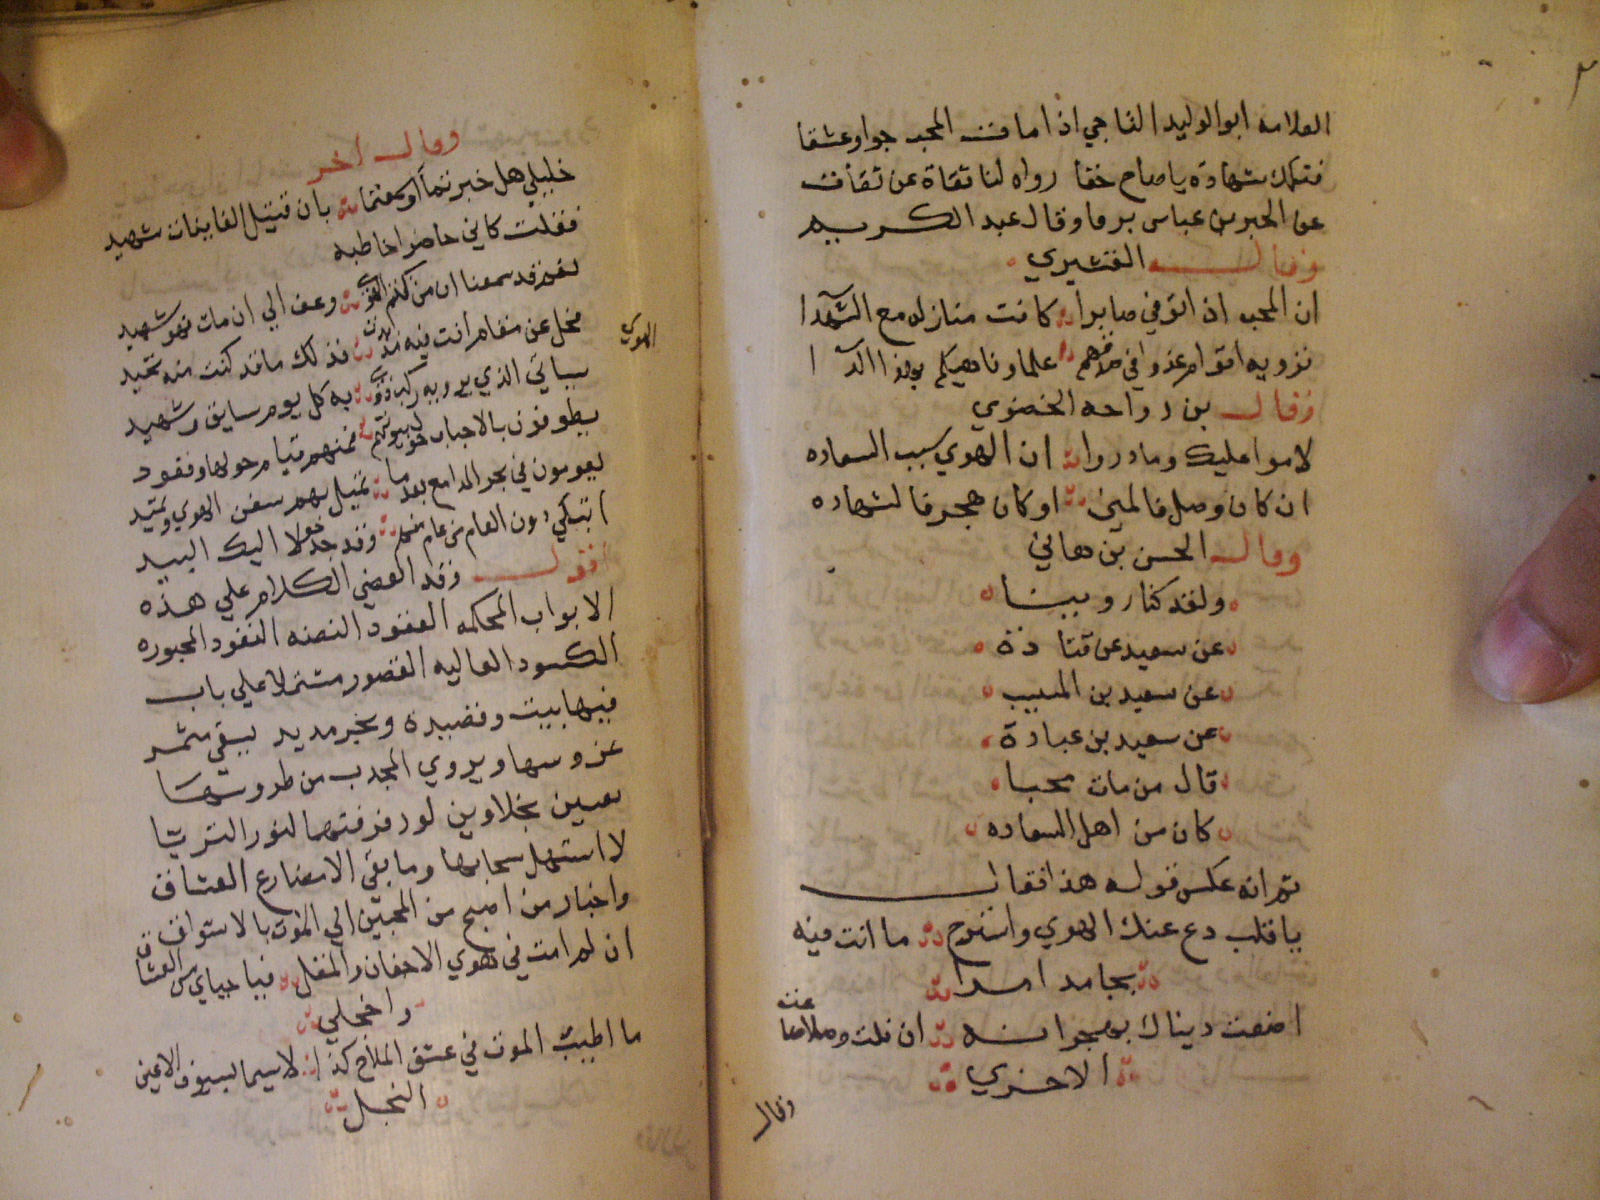 العلامه ابو الوليد الناجي اذا مات المحب جوا وعشقا
فتلك شهادة ياصاح حقا رواه لنا ثقاة عن ثقات
عن الحبر بن عباس يرقا وقال عبد الكريم
القشيري
ان المحب اذا توفي صابرا كانت منازله مع الشهدا
نرويه اقوام غدوا في علما وناهيكم بهذا
وقال بن رواحه الحضوي
لاموا عليك وما دروا ان الهوي سبب السعاده
ان كان وصل فالمني او كان هجر فالشهاده
وقال الحسن بن هاني
ولقد كنا روينا
عن سعيد عن قتادة
عن سعيد بن المسيب
عن سعيد بن عبادة
قال من مات محبا
كان من اهل السعاده
ثم انه عكس قوله هذا فقال
ياقلب دع عنك الهوي واسترح ما انت فيه
بحامد امرا
اضعت دنياك بهجرانه ان نلت وصلا ضاعت
الاخري
وقال
وقال اخر
خليلي هل خبرتما او سمعتما بان قتيل الغانيات شهيد
فقلت كاني حاضرا خاطبه
لقد سمعنا ان من كتم الهوي وعف الي ان مات فهو شهيد
الهوي
فخل عن مقام انت فيه فذلك ما قد كنت منه تحيد
سياتي الذي به كل يوم سايق وشهيد
يطوفون بالاحباب حول بيوتهم فمنهم قيام حولها وقعود
يعومون في بحر المدامع بعدما تميل بهم سفن الهوي وتميد
اتبكي دون العام من عام وقد الا اليك البيد
اقول وقد انقضي الكلام علي هذه
الابواب المحكمه العقود النقود المجبوره
الكسود العاليه القصور مشتملا علي باب
فيها بيت وقصيدة وبحر مديد يبقي مثمر
غروسها ويروي المجدب من طروسها
بعين نجلاوين لو رفرفتهما لنور الثريا
لا استهل سحابها وما بقي الا مصارع العشاق
واخبار من اصبح من المحبين الي الموت بالاشواق
ان لم امت في هوي الاجفان والمقل فيا حياي من العشاق
وا خجلي
ما اطيب الموت في عشق الملاح كذا لا سيما بسيوف الاعين
النجل